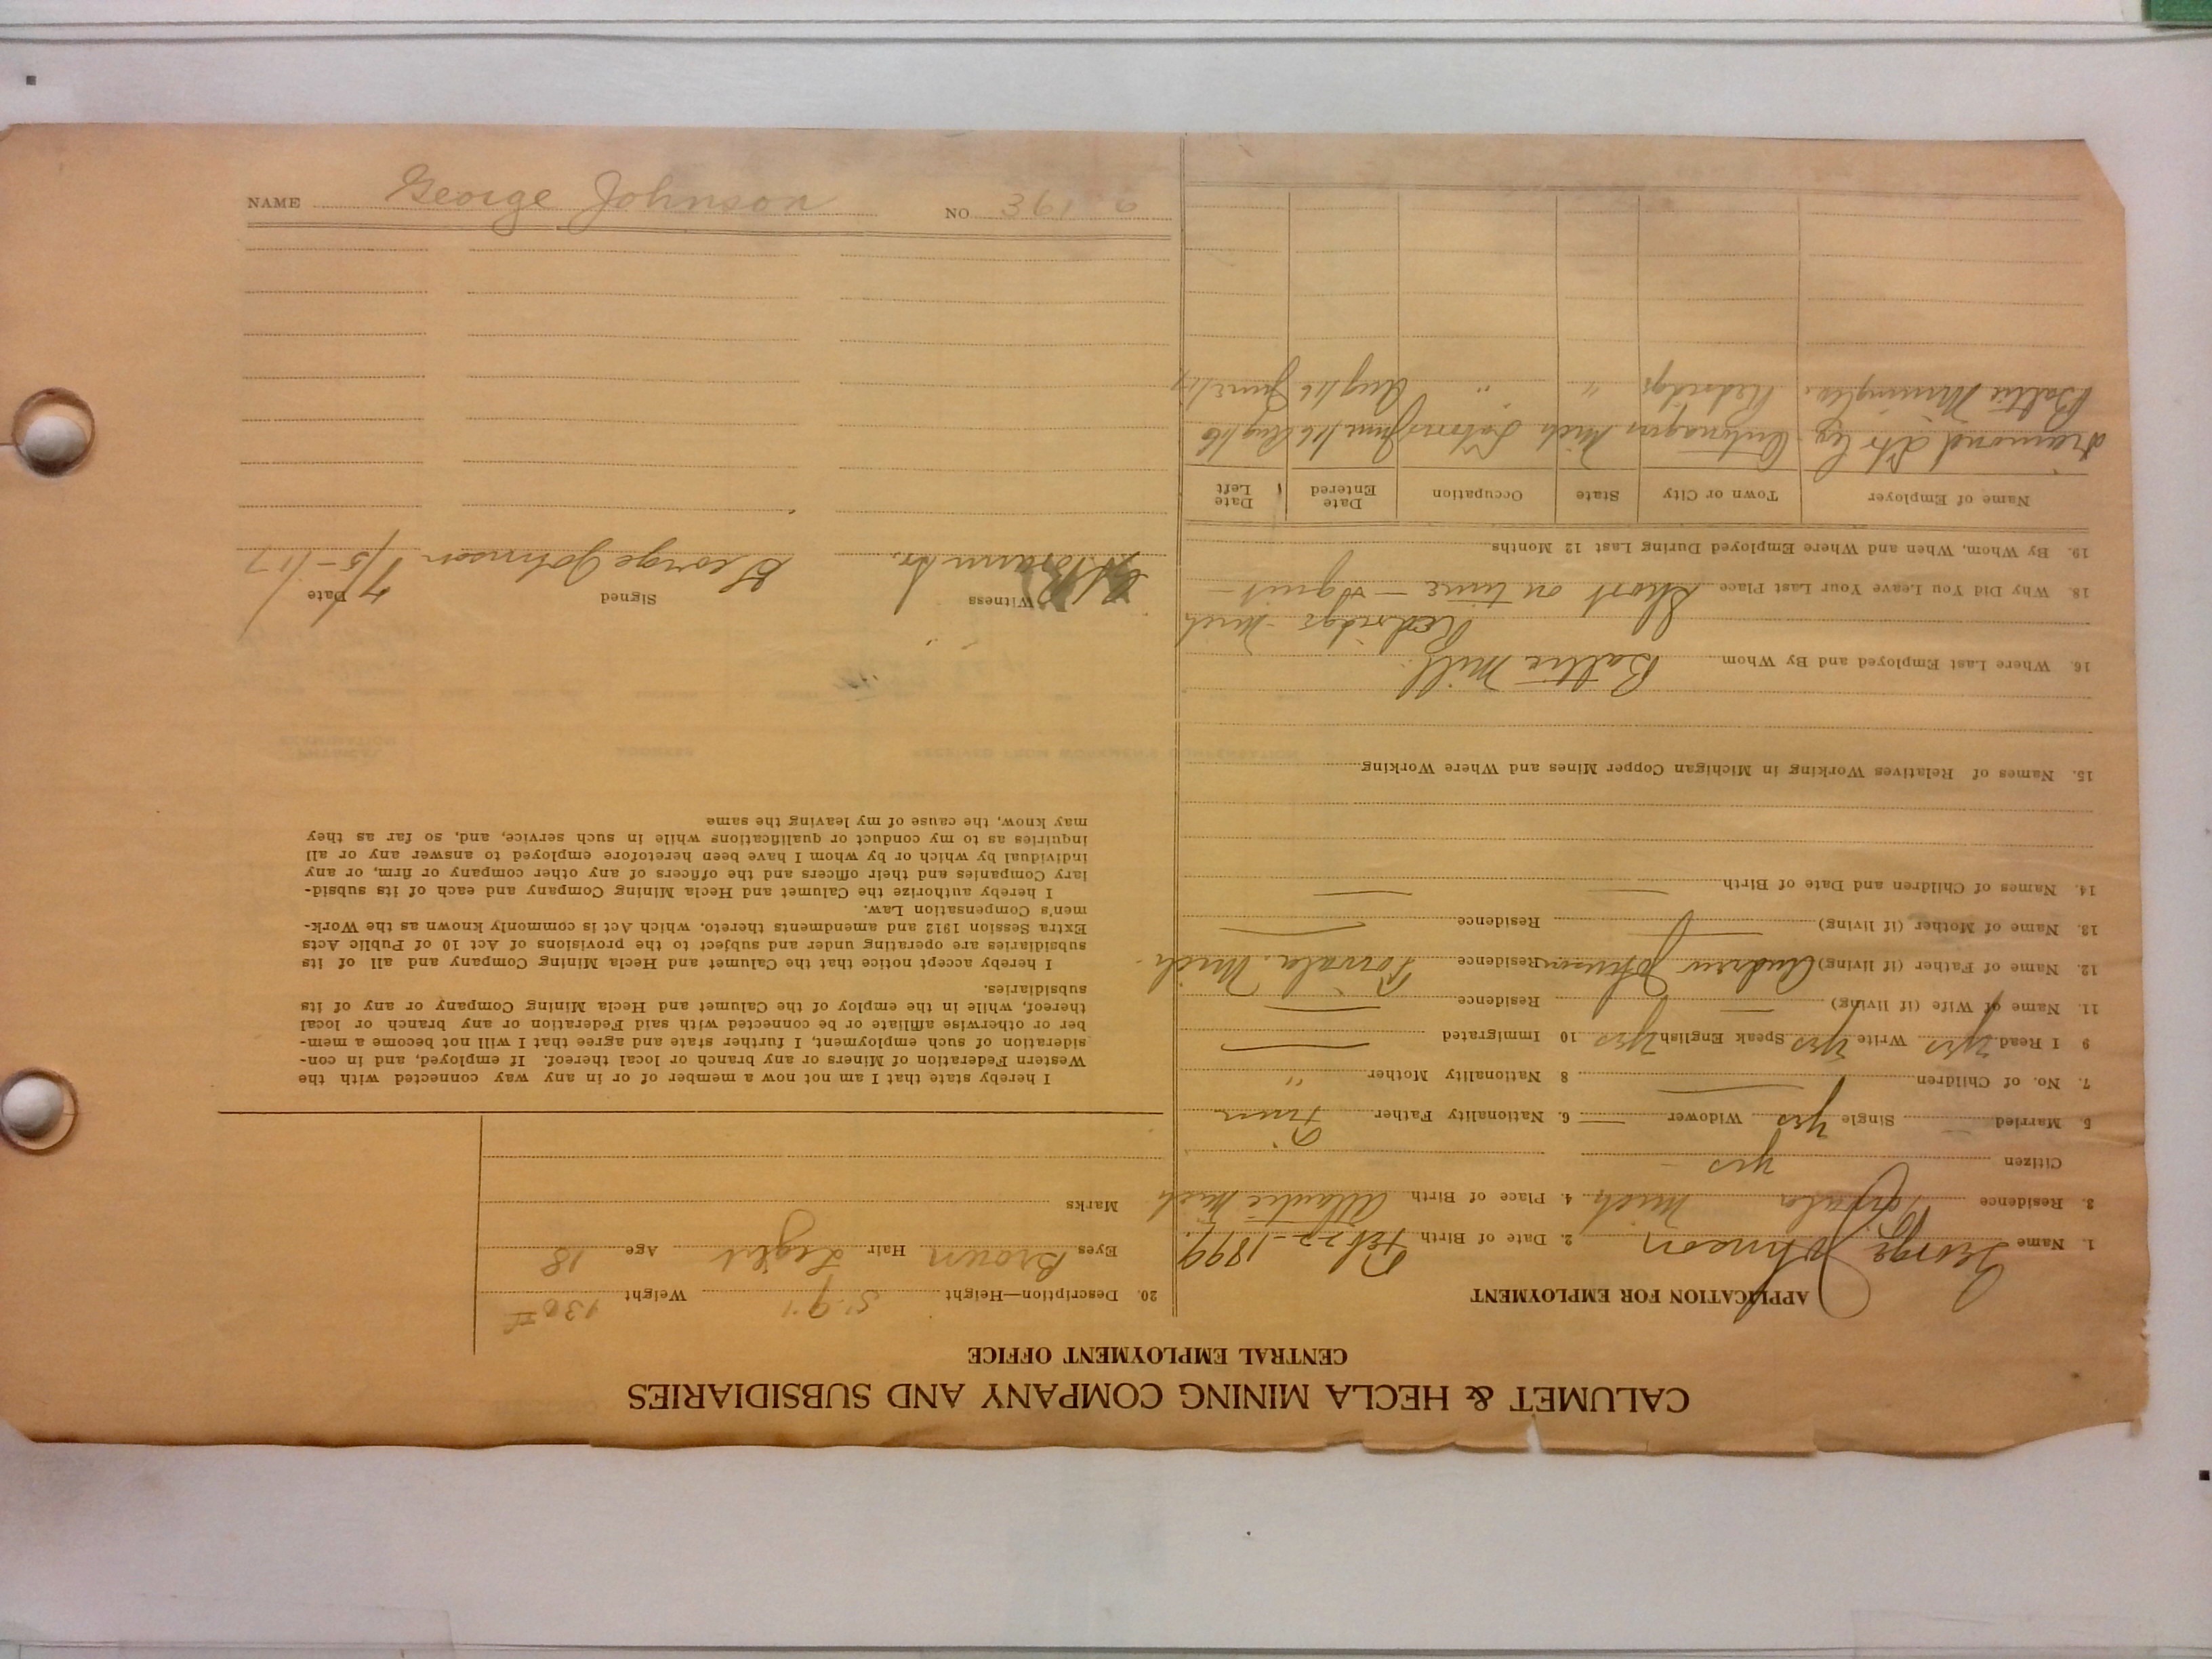 CALUMET & HECLA MINING COMPANY AND SUBSIDIARIES
CENTRAL EMPLOYMENT OFFICE
APPLICATION FOR EMPLOYMENT
1. Name George Johnson 2. Date of Birth Feb 22-1899.
3. Residence Toivola Mich 4. Place of Birth Atlantic Mich
Citizen yes
5 Married Single yes Widower 6. Nationality Father Finn
7. No. of Children 8 Nationality Mother "
9 I Read yes Write yes Speak English yes 10 Immigrated
11. Name of Wife (if living) Residence
12. Name of Father (if living) Andrew Johnson Residence Toivola. Mich.
13. Name of Mother (if living) Residence
14. Names of Children and Date of Birth
15. Names of Relatives Working in Michigan Copper Mines and Where Working
16. Where Last Employed and By Whom Baltic Mill.
Redridge Mich
18. Why Did You Leave Your Last Place Short on time - quit -
19. By Whom, When and Where Employed During Last 12 Months
Name of Employer Town or City State Occupation Date Entered Date Left
Diamond Ontonagon Mich June/16 Aug/16
Baltic Mining Co. Redridge " " Aug/16 June/17
20. Description—Height 5'9" Weight 130#
Eyes Brown Hair Light Age 18
Marks
I hereby state that I am not now a member of or in any way connected with the
Western Federation of Miners or any branch or local thereof. If employed, and in con-
sideration of such employment, I further state and agree that I will not become a mem-
ber or otherwise affiliate or be connected with said Federation or any branch or local
thereof, while in the employ of the Calumet and Hecla Mining Company or any of its
subsidiaries.
I hereby accept notice that the Calumet and Hecla Mining Company and all of its
subsidiaries are operating under and subject to the provisions of Act 10 of Public Acts
Extra Session 1912 and amendments thereto, which Act is commonly known as the Work-
men's Compensation Law.
I hereby authorize the Calumet and Hecla Mining Company and each of its subsid-
iary Companies and their officers and the officers of any other company or firm, or any
individual by which or by whom I have been heretofore employed to answer any or all
inquiries as to my conduct or qualifications while in such service, and, so far as they
may know, the cause of my leaving the same
Witness Signed Date
George Johnson 7/5-/17
NAME George Johnson NO 361